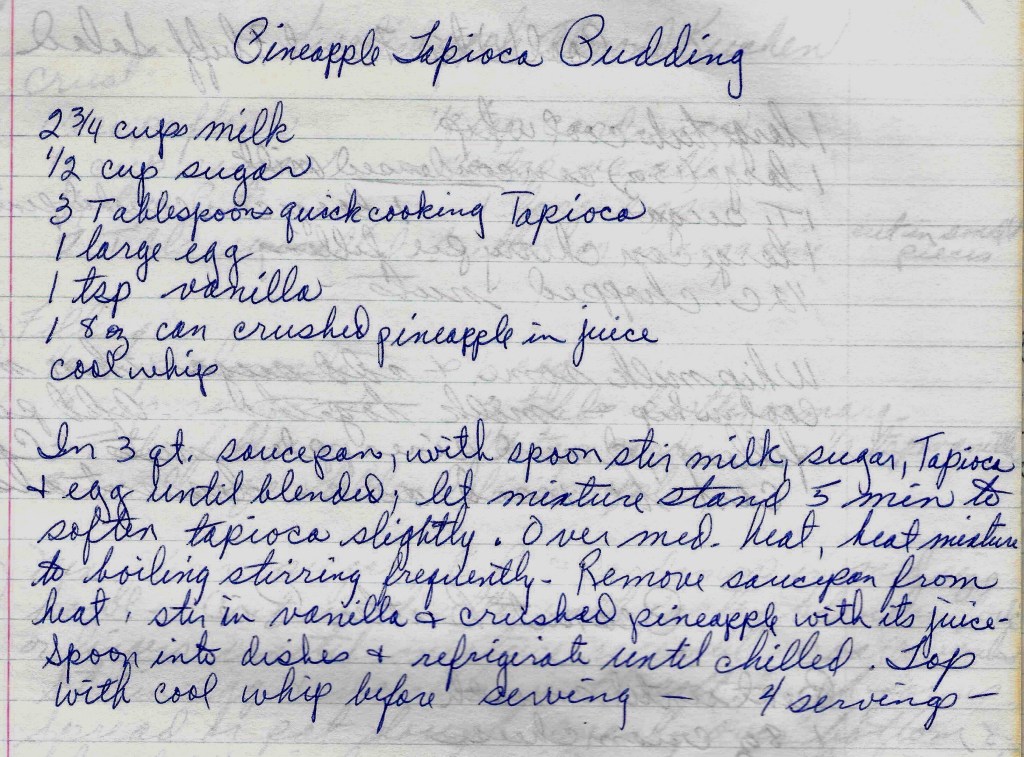 Pineapple Tapioca Pudding
2 3/4 cups milk
1/2 cup sugar
3 Tablespoons quick cooking Tapioca
1 large egg
1 tsp vanilla
1 8 oz can crushed pineapple in juice
cool whip
In 3 qt. saucepan, with spoon stir milk, sugar, Tapioca
+ egg until blended; let mixture stand 5 min to
soften tapioca slightly. Over med. heat, heat mixture
to boiling stirring frequently - Remove saucepan from
heat, stir in vanilla + crushed pineapple with its juice -
Spoon into dishes + refrigirate until chilled. Top
with cool whip before serving — 4 servings -